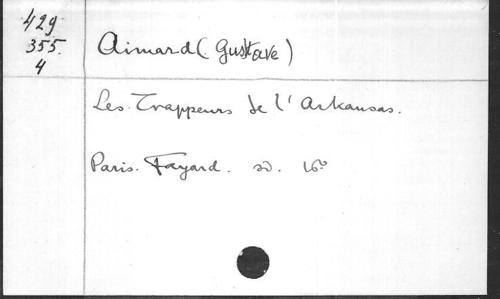 429
355.
4
Aimard (Gustave)
Les Trappeurs de l'Arkansas.
Paris. Fayard. sd. 16º